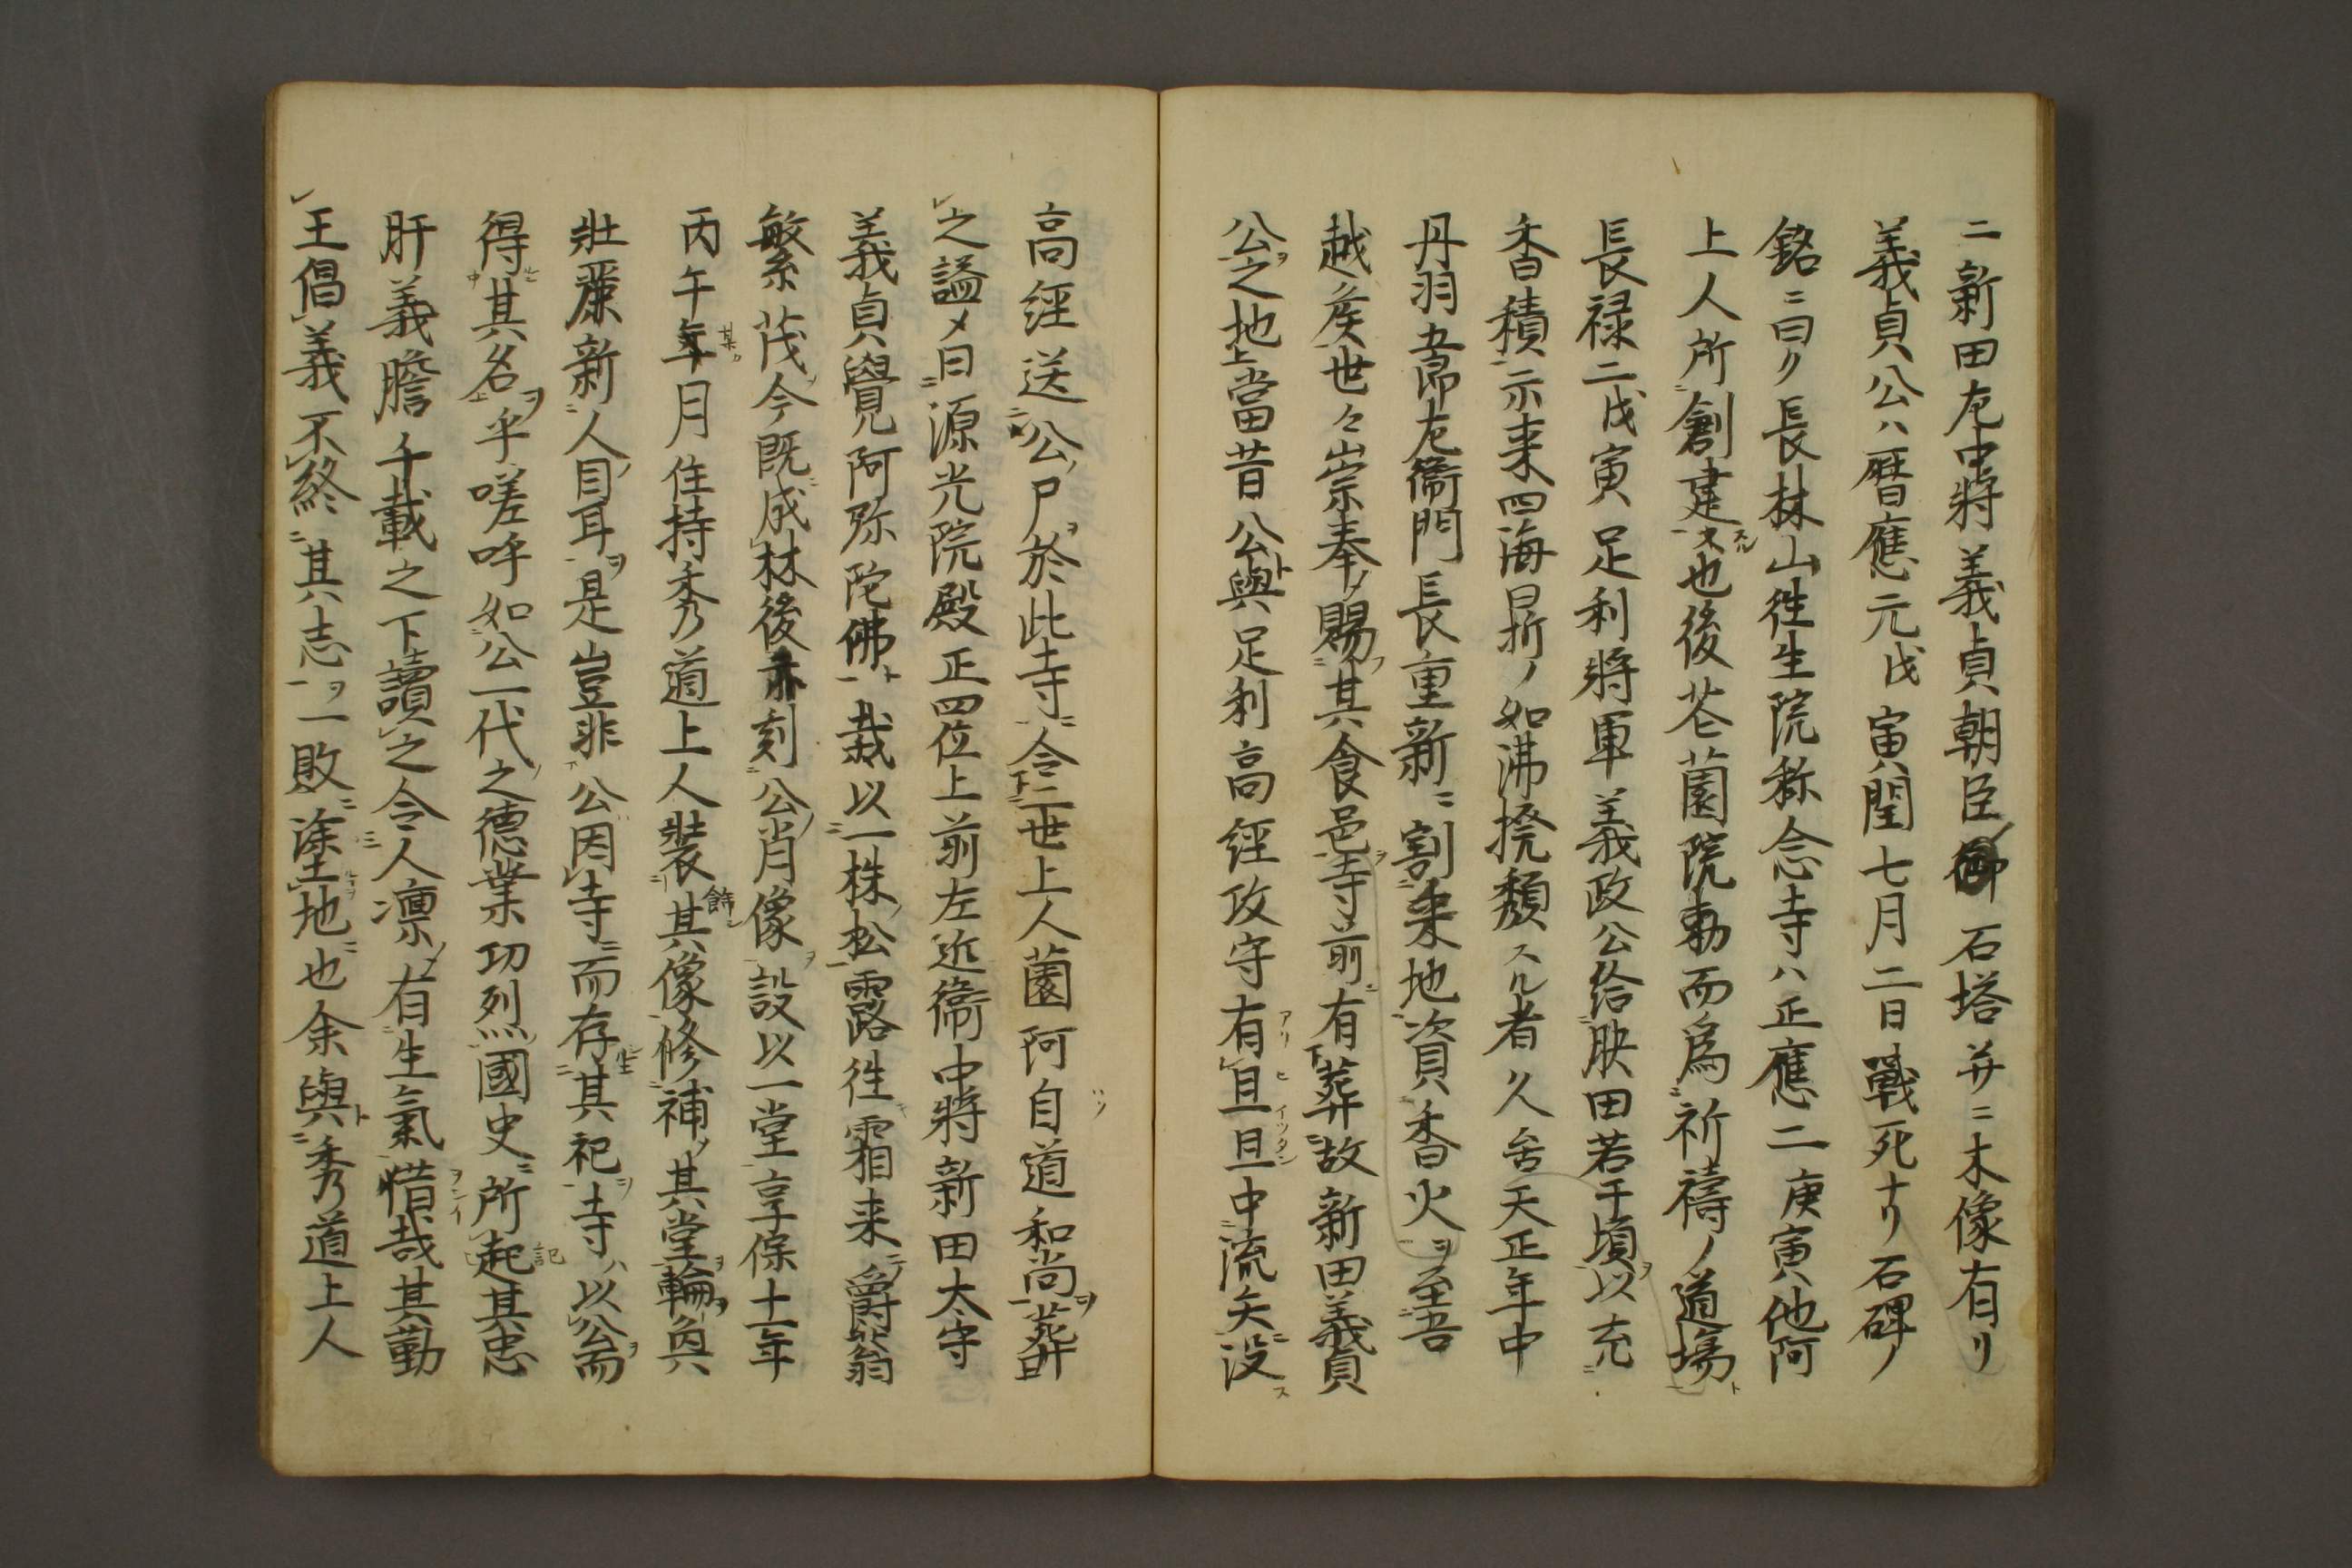 ニ新田左中將義貞朝臣御石塔并ニ木像有リ
義貞公ハ暦應元戊寅閏七月二日戰死ナリ石碑ノ
銘ニ曰ク長林山徃生院称念寺ハ正應二庚寅他阿
上人所創建スル也後花園院勅而為祈禱ノ道場ト
長禄二戊寅足利將軍義政公給腴田若干頃ヲ以充
香積示来四海曰折ノ如沸撓頽スル者久矣天正年中
丹羽五郎左衞門長重新ニ割来地資香火ヲ至吾
越ノ侯世々崇奉ノ賜フ其食邑ヲ寺前ニ有葬故新田義貞
公ヲ之地上當昔公與ト足利高經攻守有アリ旦ヒ旦イツタン中流矢ニ没ス
高經送公ノ尸ヲ於此寺ニ令二世上人薗阿自道和尚ヲ葬
之謚メ曰源光院殿正四位上前左近衞中將新田太守
義貞覺阿弥陀佛ト栽以一株ノ松露徃霜来爵蓊
繁茂今既成林後亦刻公ノ肖像ヲ設以一堂享保十一年
丙午年某月住持秀道上人裝餝其像修補ノ其堂ヲ輪奐
壯麗新ニ人ノ目耳ヲ是豈非公因寺ニ而存其祀ヲ寺ハ以公ヲ而
得其名ヲ乎嗟呼如公一代ノ之德業功烈國史ニ所起記其忠
肝義膽千載之下讀之令人凛有生氣惜哉其勤
王倡義不終其志ヲ一敗ニ塗地ニ也余與ト秀道上人